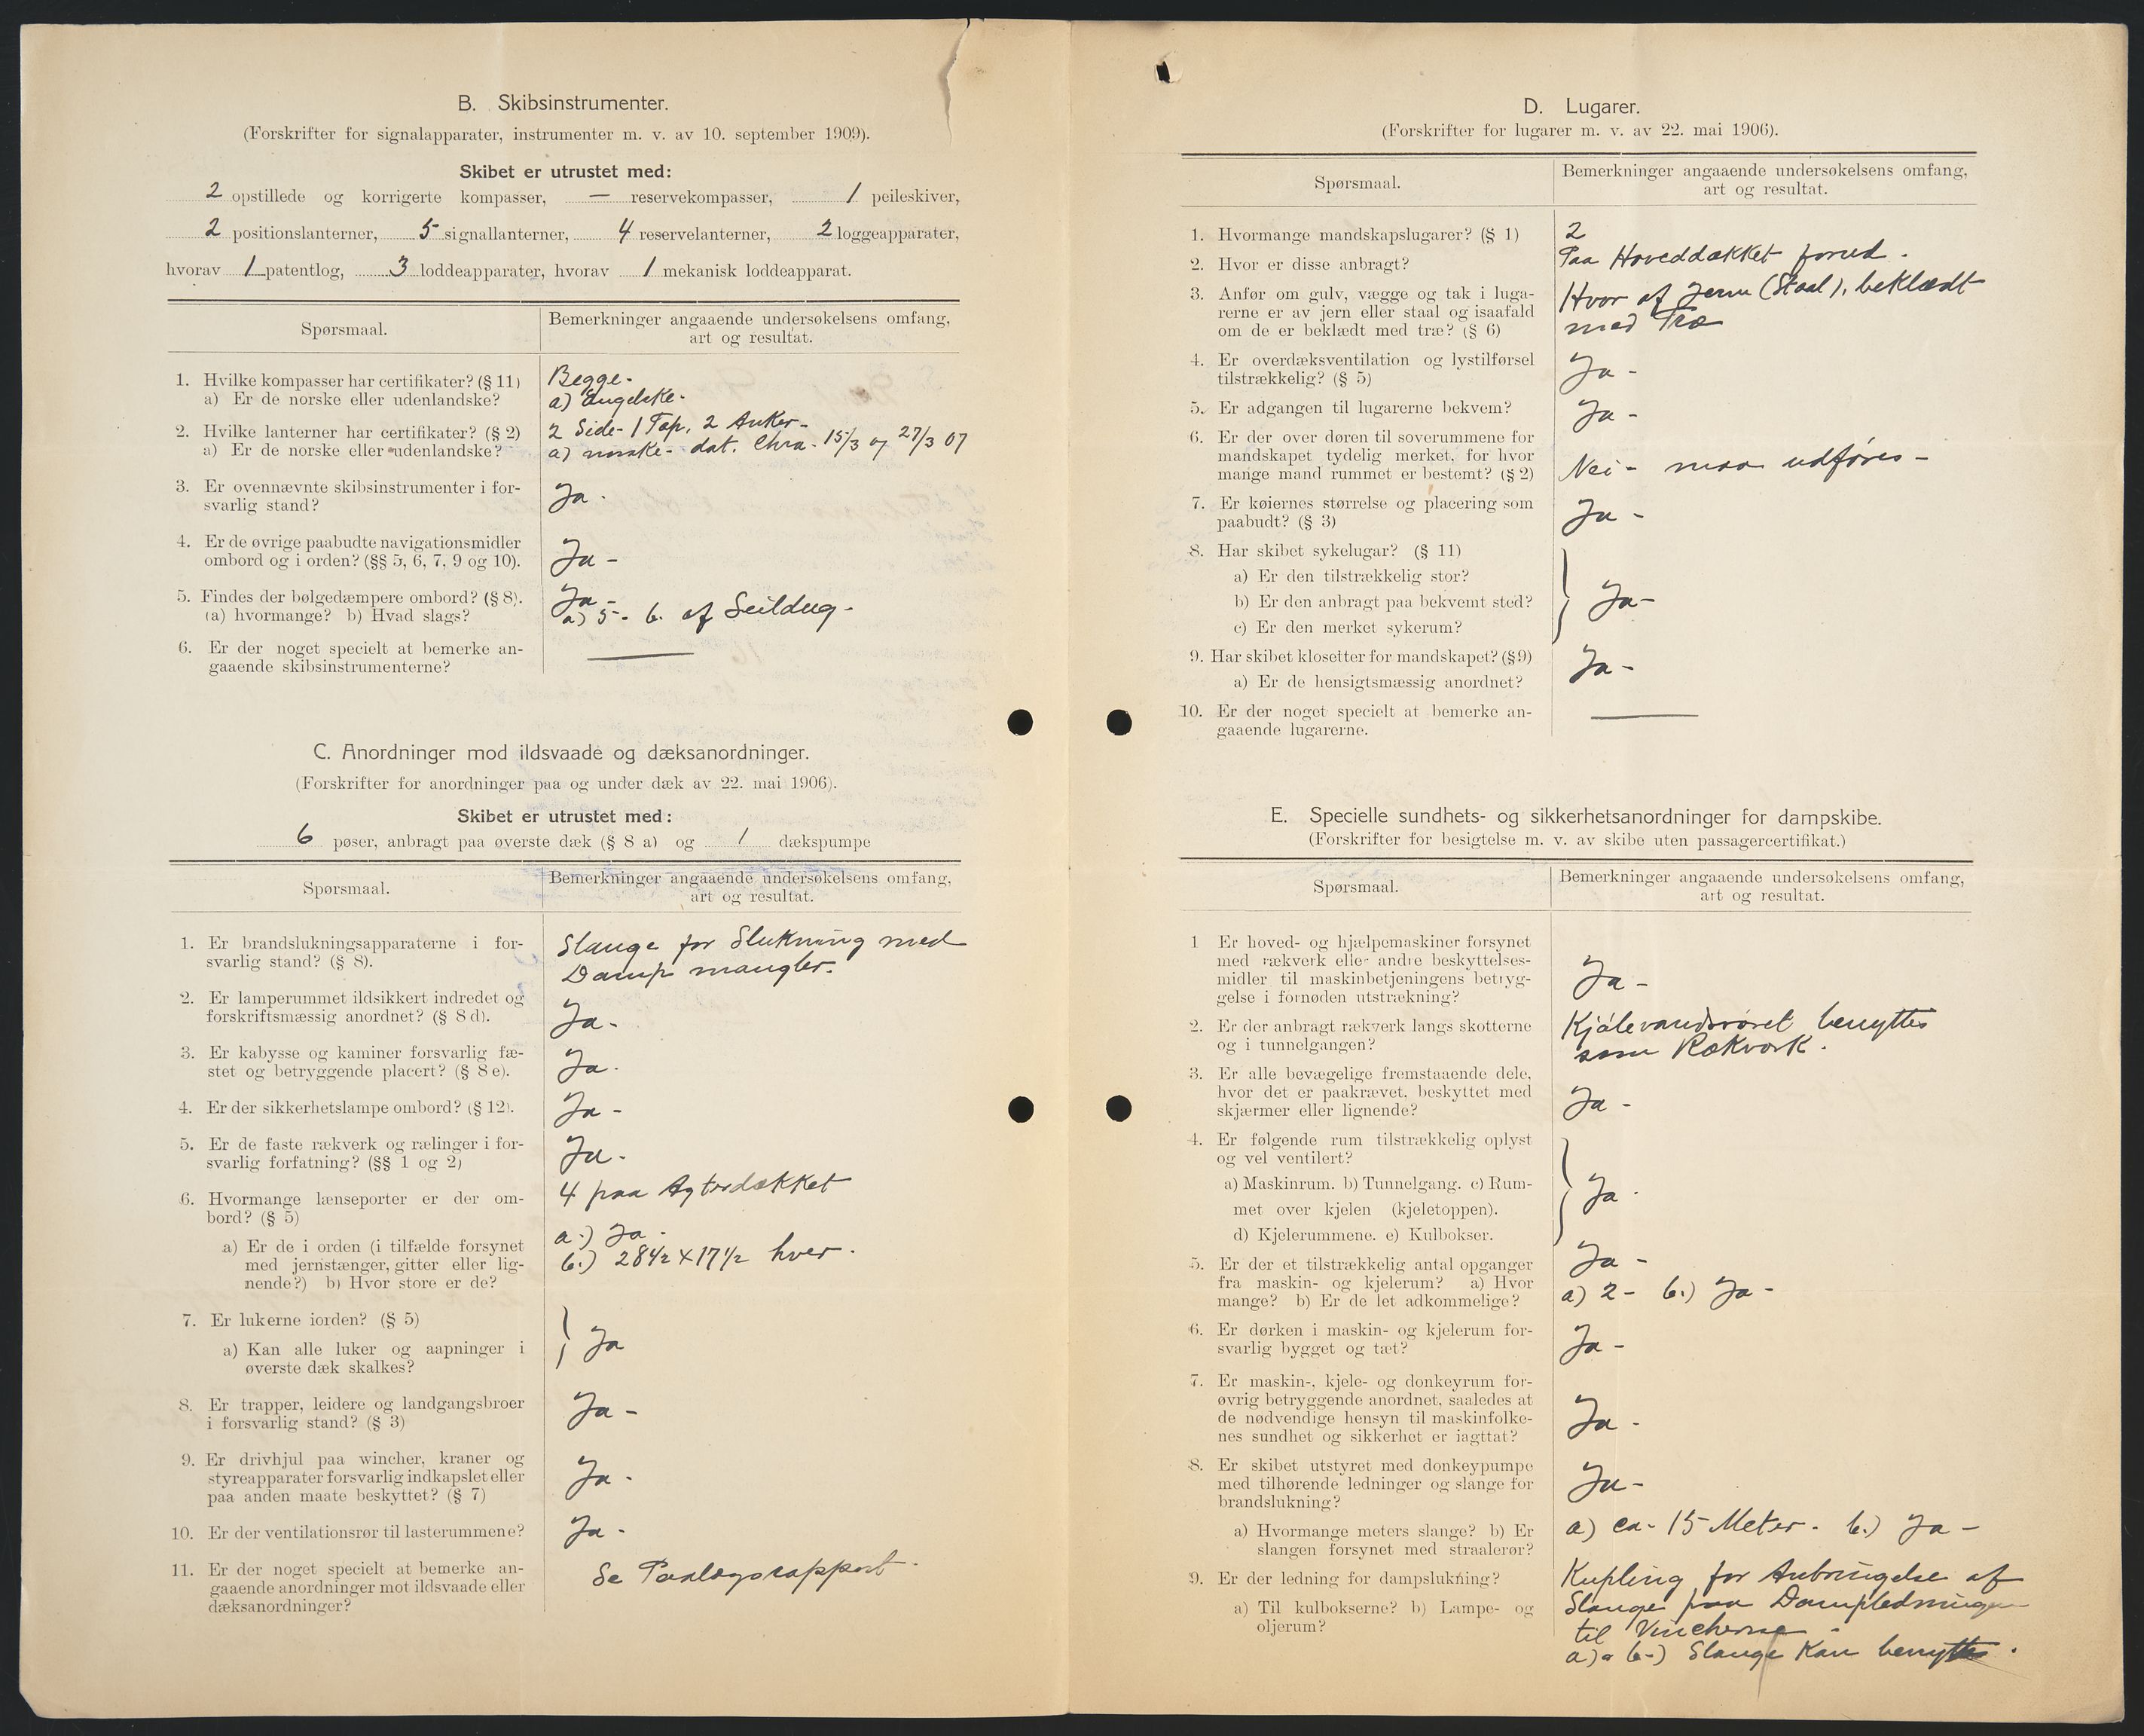 B. Skibsinstrumenter.
(Forskrifter for signalapparater, instrumenter m. v. av 10. september 1909).
Skibet er utrustet med:
2 opstillede og korrigerte kompasser, — reservekompasser, 1 peileskiver,
2 positionslanterner, 5 signallanterner, 4 reservelanterner, 2 loggeapparater,
hvorav 1 patentlog, 3 loddeapparater, hvorav 1 mekanisk loddeapparat.
Spørsmaal.
Bemerkninger angaaende undersøkelsens omfang,
art og resultat.
1. Hvilke kompasser har certifikater? (§ 11)
a) Er de norske eller udenlandske?
Begge -
a) Engelske -
2. Hvilke lanterner har certifikater? (§ 2)
a) Er de norske eller udenlandske?
2 Side - 1 Top, 2 Anker -
a) norske - dat. Chra. 15/3 og 27/3 07
3. Er ovennævnte skibsinstrumenter i for-
svarlig stand?
Ja -
4. Er de øvrige paabudte navigationsmidler
ombord og i orden? (§§ 5, 6, 7, 9 og 10).
Ja -
5. Findes der bølgedæmpere ombord? (§ 8).
(a) hvormange? b) Hvad slags?
Ja -
a) 5 - b. af Seildug -
6. Er der noget specielt at bemerke an-
gaaende skibsinstrumenterne?
—
C. Anordninger mod ildsvaade og dæksanordninger.
(Forskrifter for anordninger paa og under dæk av 22. mai 1906).
Skibet er utrustet med:
6 pøser, anbragt paa øverste dæk (§ 8 a) og 1 dækspumpe
Spørsmaal.
Bemerkninger angaaende undersøkelsens omfang,
art og resultat.
1. Er brandslukningsapparaterne i for-
svarlig stand? (§ 8).
Slange for Slukning med
Damp mangler.
2. Er lamperummet ildsikkert indredet og
forskriftsmæssig anordnet? (§ 8 d).
Ja -
3. Er kabysse og kaminer forsvarlig fæ-
stet og betryggende placert? (§ 8 e).
Ja -
4. Er der sikkerhetslampe ombord? (§ 12).
Ja -
5. Er de faste rækverk og rælinger i for-
svarlig forfatning? (§§ 1 og 2)
Ja -
6. Hvormange lænseporter er der om-
bord? (§ 5)
4 paa Agterdækket
a) Er de i orden (i tilfælde forsynet
med jernstænger, gitter eller lig-
nende?) b) Hvor store er de?
a.) Ja -
b.) 28 1/2 x 17 1/2 hver -
7. Er lukerne iorden? (§ 5)
a) Kan alle luker og aapninger i
øverste dæk skalkes?
Ja
8. Er trapper, leidere og landgangsbroer
i forsvarlig stand? (§ 3)
Ja -
9. Er drivhjul paa wincher, kraner og
styreapparater forsvarlig indkapslet eller
paa anden maate beskyttet? (§ 7)
Ja -
10. Er der ventilationsrør til lasterummene?
Ja -
11. Er der noget specielt at bemerke an-
gaaende anordninger mot ildsvaade eller
dæksanordninger?
Se Paalægsrapport -
D. Lugarer.
(Forskrifter for lugarer m. v. av 22. mai 1906).
Spørsmaal.
Bemerkninger angaaende undersøkelsens omfang,
art og resultat.
1. Hvormange mandskapslugarer? (§ 1)
2
2. Hvor er disse anbragt?
Paa Hoveddækket forud -
3. Anfør om gulv, vægge og tak i luga-
rerne er av jern eller staal og isaafald
om de er beklædt med træ? (§ 6)
Hvor af Jern (Staal), beklædt
med Træ
4. Er overdæksventilation og lystilførsel
tilstrækkelig? (§ 5)
Ja -
5. Er adgangen til lugarerne bekvem?
Ja -
6. Er der over døren til soverummene for
mandskapet tydelig merket, for hvor
mange mand rummet er bestemt? (§ 2)
Nei - maa udføres -
7. Er køiernes størrelse og placering som
paabudt? (§ 3)
Ja -
8. Har skibet sykelugar? (§ 11)
a) Er den tilstrækkelig stor?
b) Er den anbragt paa bekvemt sted?
c) Er den merket sykerum?
Ja -
9. Har skibet klosetter for mandskapet? (§ 9)
a) Er de hensigtsmæssig anordnet?
Ja -
10. Er der noget specielt at bemerke an-
gaaende lugarerne.
—
E. Specielle sundhets- og sikkerhetsanordninger for dampskibe.
(Forskrifter for besigtelse m. v. av skibe uten passagercertifikat.)
Spørsmaal.
Bemerkninger angaaende undersøkelsens omfang,
art og resultat.
1 Er hoved- og hjælpemaskiner forsynet
med rækverk eller andre beskyttelses-
midler til maskinbetjeningens betryg-
gelse i fornøden utstrækning?
Ja -
2. Er der anbragt rækverk langs skotterne
og i tunnelgangen?
Kjølevandsrøret benyttes
som Rækværk.
3. Er alle bevægelige fremstaaende dele,
hvor det er paakrævet, beskyttet med
skjærmer eller lignende?
Ja -
4. Er følgende rum tilstrækkelig oplyst
og vel ventilert?
a) Maskinrum. b) Tunnelgang. c) Rum-
met over kjelen (kjeletoppen).
d) Kjelerummene. e) Kulbokser.
Ja -
5. Er der et tilstrækkelig antal opganger
fra maskin- og kjelerum? a) Hvor
mange? b) Er de let adkommelige?
Ja -
a) 2 - b.) Ja -
6. Er dørken i maskin- og kjelerum for-
svarlig bygget og tæt?
Ja -
7. Er maskin-, kjele- og donkeyrum for-
øvrig betryggende anordnet, saaledes at
de nødvendige hensyn til maskinfolke-
nes sundhet og sikkerhet er iagttat?
Ja -
8. Er skibet utstyret med donkeypumpe
med tilhørende ledninger og slange for
brandslukning?
Ja -
a) Hvormange meters slange? b) Er
slangen forsynet med straalerør?
a) ca. 15 Meter - b.) Ja -
9. Er der ledning for dampslukning?
a) Til kulbokserne? b) Lampe- og
oljerum?
Kupling for Anbringelse af
Slange paa Dampledningen
til Vincherne -
a) & b.) Slange Kan benyttes.